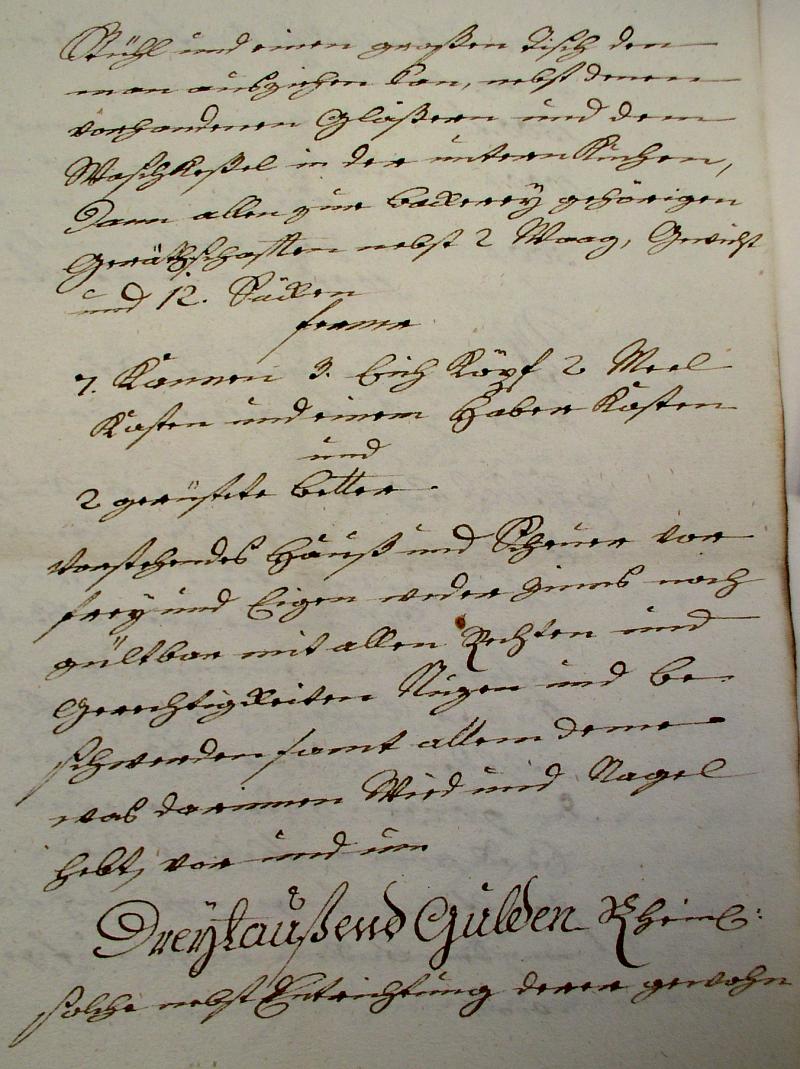 Stühl und einen großen Tisch den
man ausziehen kan, nebst denen
vorhandenen Gläßern und dem
Waschkeßel in der untern Kuchen,
Dann allen zur beckerey gehörigen
Geräthschafften nebst 2 Waag, Gewicht
und 12. Säcken
ferner
7. Kannen 3. Köpf 2 Meel
Kasten und einem Haber Kasten
und
2 gerüstete better.
Vorstehendes Hauß und Scheuer vor
frey und Eigen weder Zinns noch
gültbar mit allen Rechten und
Gerechtigkeiten Nuzen und be-
schwerden samt allem deme
was darinnen Wied und Nagel
hebt, vor und um
Dreytaußend Gulden Rheinl:
solche nebst Entrichtung derer gewohn